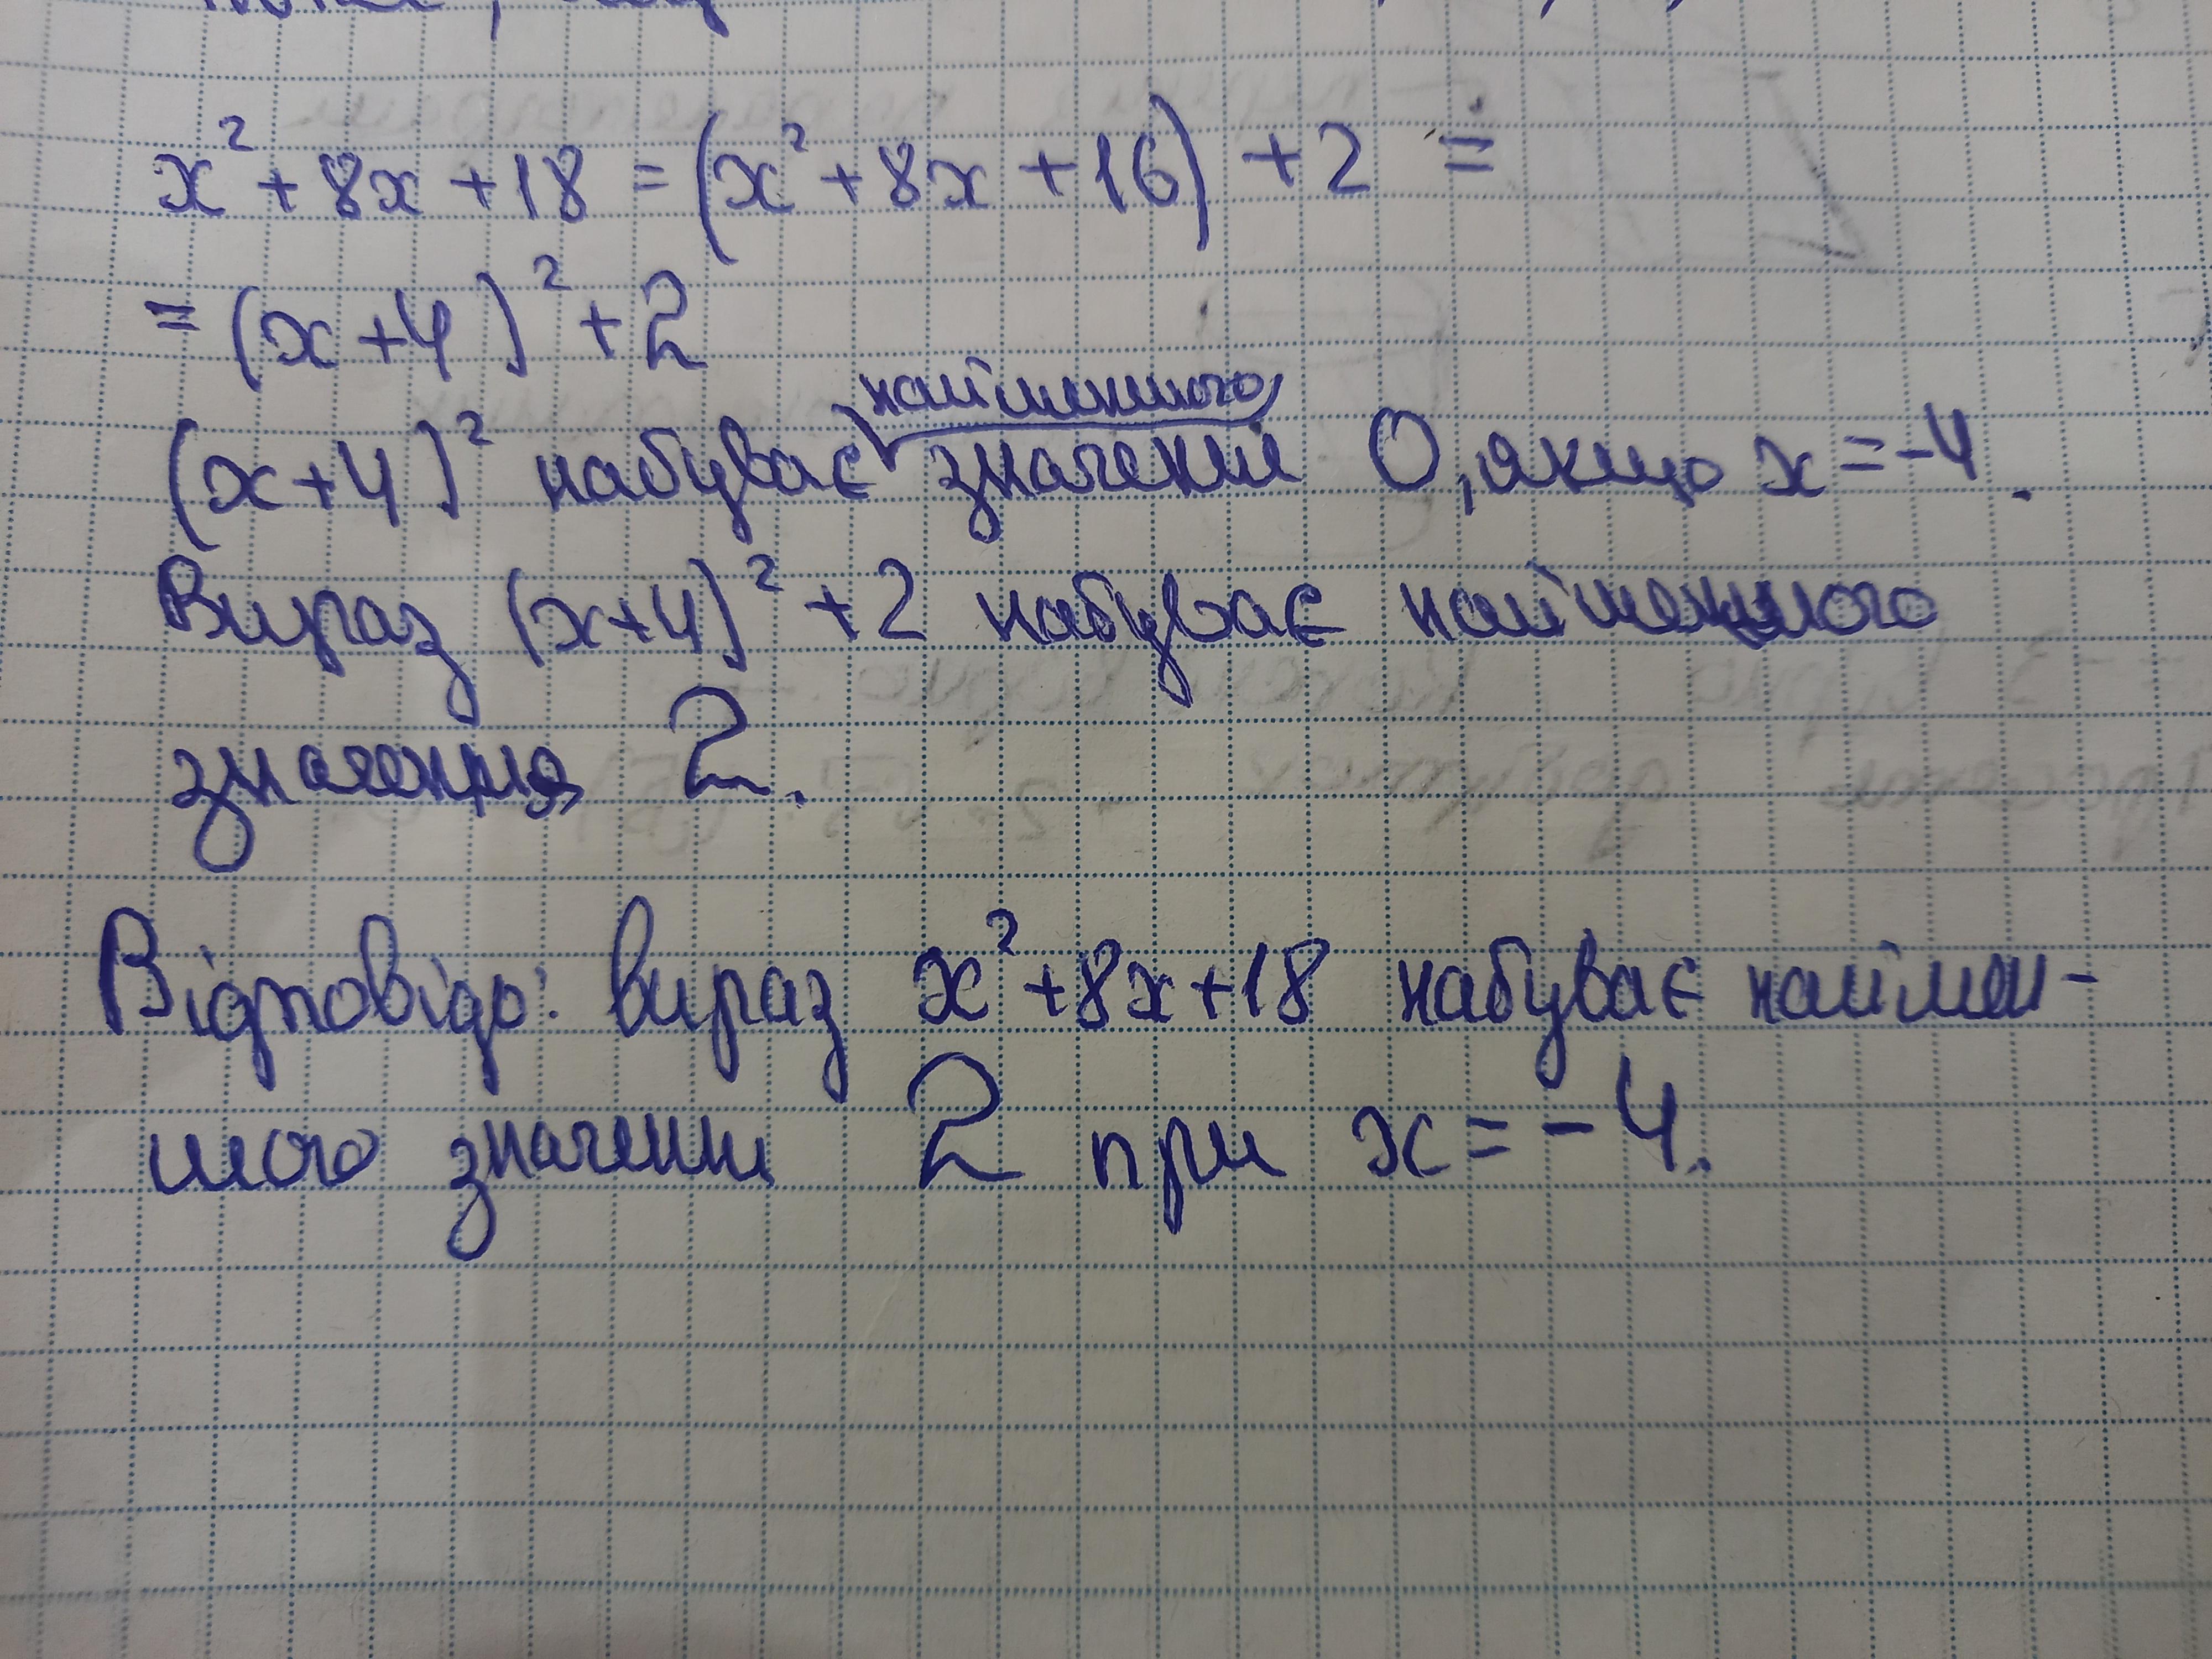 x² + 8x + 18 = (x² + 8x + 16) + 2 =
= (x + 4)² + 2
найменшого
(x+4)² набуває значення 0, якщо x = -4.
Вираз (x+4)² + 2 набуває найменшого
значення 2.
Відповідь: вираз x² + 8x + 18 набуває наймен-
шого значення 2 при x = -4.